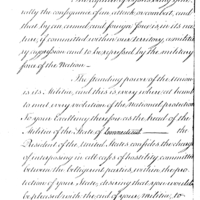 rally the consequence of an attack, or combat, and
that by an armed and foreign power, is in its na-
ture, if committed within our territory,
aggression and to be repressed by the military
force of the Nation.
The standing power of the Union
is its Militia, and this is every where at hand
to meet every violation of the National
To your Excellency therefore as the head of the
Militia of the State of Connecticut the
President of the United States confides the charge
of interposing in all cases of hostility committed
between the belligerent parties within the pro-
tection of your State, desiring that you would
be pleased with the aid of your Militia, to